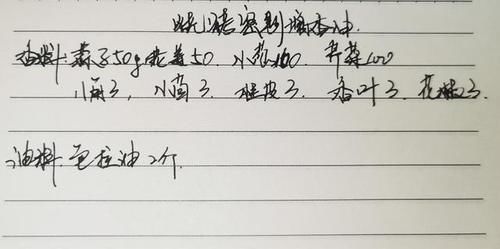 烧烤秘制酱香油
香料:蒜子50g 花姜50 小葱100 芹菜100
八角3,小茴3,桂皮3.香叶3.花椒3.
油料.色拉油2斤